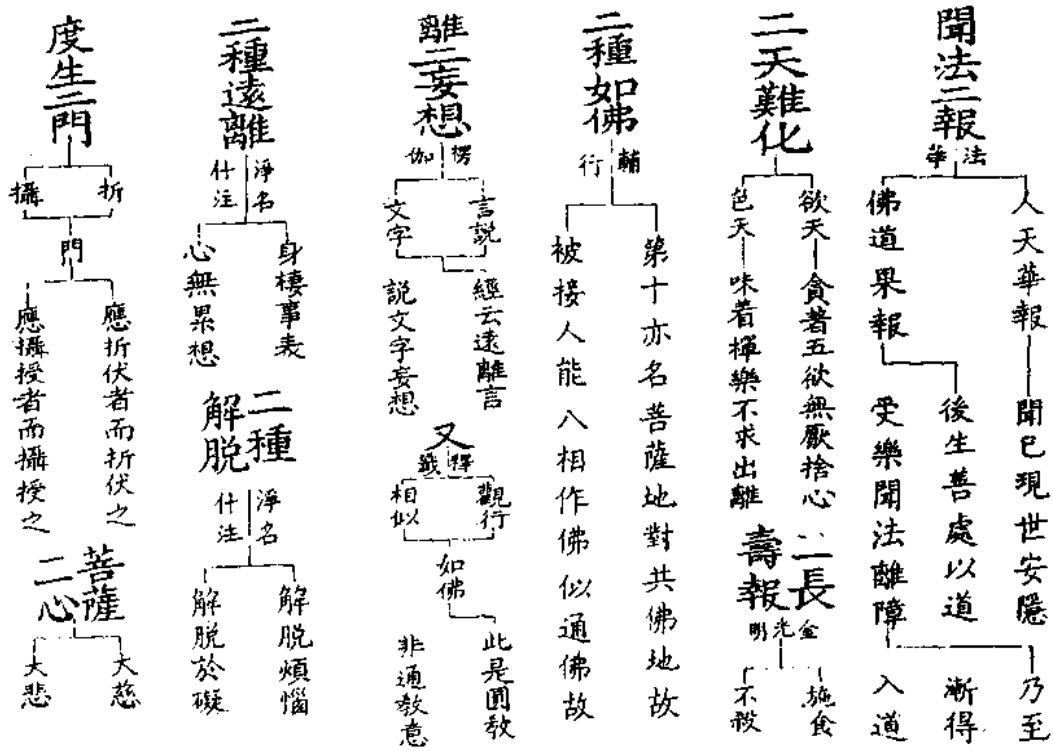 聞法二報
法華
人天華報
聞已現世安隱
乃至
佛道果報
後生善處以道
漸得
受樂聞法離障
入道
二天難化
欲天
貪著五欲無厭捨心
色天
味着禪樂不求出離
二長壽報
金光明
施食
不殺
二種如佛
輔行
第十亦名菩薩地對共佛地故
被接人能八相作佛似通佛故
離二妄想
楞伽
言説
文字
經云遠離言
説文字妄想
又
釋籤
觀行
相似
如佛
此是圓教
非通教意
二種遠離
淨名
什注
身棲事表
心無累想
二種解脱
淨名
什注
解脱煩惱
解脱於礙
度生二門
折
攝
門
應折伏者而折伏之
應攝授者而攝授之
菩薩二心
大慈
大悲